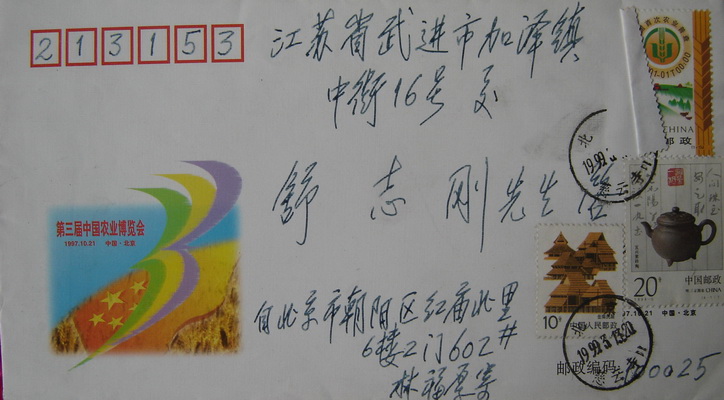 213153
江苏省武进市加泽镇
中街16号 交
舒志刚先生启
第三届中国农业博览会
1997.10.21 中国·北京
自北京市朝阳区红庙北里
6楼2门602#
林福厚寄
邮政编码
100025
首次农业普查
CHINA
邮政
中国邮政
CHINA
20分
10分
中国人民邮政
北
慈云寺
北
1999.3
慈云寺